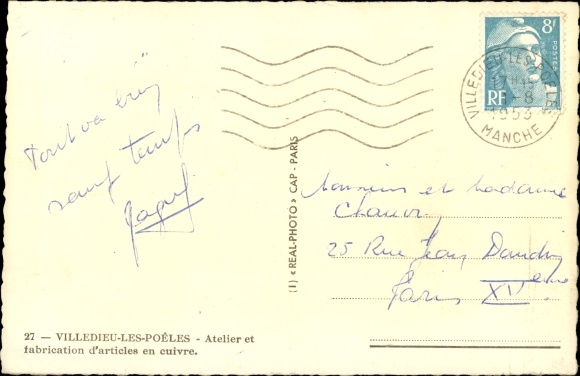 Tout va bien
sauf temps
8F
POSTES
RF
VILLEDIEU-LES-POÊLES
-8
1953
MANCHE
(1) « REAL-PHOTO » CAP - PARIS
Monsieur et Madame
Chauvy
25 Rue Jean Daudin
Paris XVeme
27 — VILLEDIEU-LES-POÊLES - Atelier et
fabrication d'articles en cuivre.